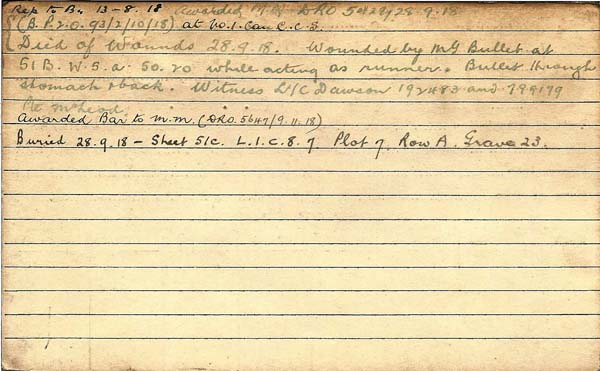 Rep to Bn. 13-8.18 Awarded M.M. DRO 5429/28.9.18
(B.P.2.O. 93/2/10/18) at No.1. Can C.C.S.
Died of Wounds 28.9.18. Wounded by MG Bullet at
51 B. W. 5. a. 50.20 while acting as runner. Bullet through
stomach & back. Witness L/C Dawson 192483 and 799179
Pte McHead.
Awarded Bar to M.M. (DRO.5647/9.11.18)
Buried 28.9.18 - Sheet 51c. L.1.C.8.7 Plot 7. Row A. Grave 23.